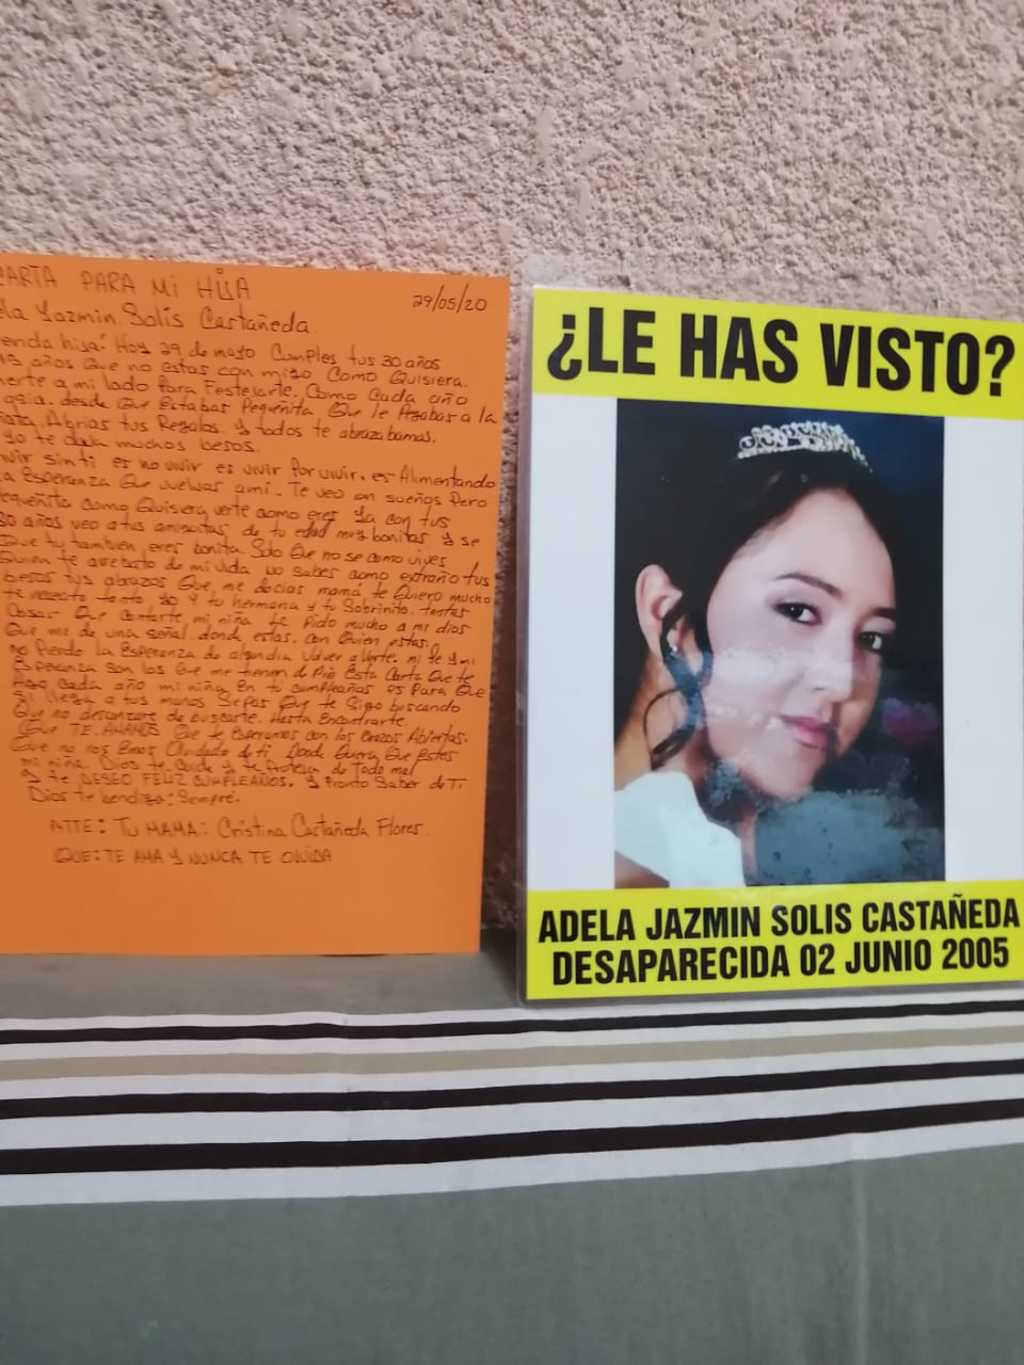 CARTA PARA MI HIJA
29/05/20
Yazmin Solis Castañeda
hija: Hoy 29 de mayo Cumples tus 30 años
años Que no estas con migo Como Quisiera.
a mi lado Para Festejarte. Como Cada año
desde Que Estabas Pequeñita Que le Pegabas a la
Abrias tus Regalos. y todos te abrazabamos.
yo te daba muchos besos.
sin ti es no vivir es vivir Por vivir. es Alimentando
Esperanza Que vuelvas a mi. Te veo en sueños Pero
Pequeñita como Quisiera verte como eres Ya con tus
30 años veo a tus amiguitas, de tu edad muy bonitas y se
Que tu tambien eres bonita. Solo Que no se como vives
Quien te arrebato de mi vida No sabes como extraño tus
besos tus abrazos Que me decias mamá te Quiero mucho
te tanto yo y tu hermana y tu Sobrinito. tantas
Cosas Que Contarte, mi niña te Pido mucho a mi dios
Que me de una señal donde estas. Con Quien estas.
no Pierdo la Esperanza de algun dia Volver a Verte. mi fe y mi
Esperanza son los Que me tienen d Pie Esta Carta Que te
Hago cada año mi niña En tu cumpleaños es Para Que
si llega a tus manos Sepas Que te Sigo buscando
Que no descanzare de buscarte. Hasta Encontrarte.
Que TE. AMAMOS Que te Esperamos con los Brazos Abiertas.
Que no nos Emos Olvidado de ti. Donde Quiera Que Estes
mi niña. Dios te Cuide y te Proteja de Todo mal
y te DESEO FELIZ CUMPLEAÑOS. y Pronto Saber de Ti
Dios te bendiga; Sempre.
ATTE: TU MAMA: Cristina Castañeda Flores.
QUE: TE AMA Y NUNCA TE OLVIDA
¿LE HAS VISTO?
ADELA JAZMIN SOLIS CASTAÑEDA
DESAPARECIDA 02 JUNIO 2005